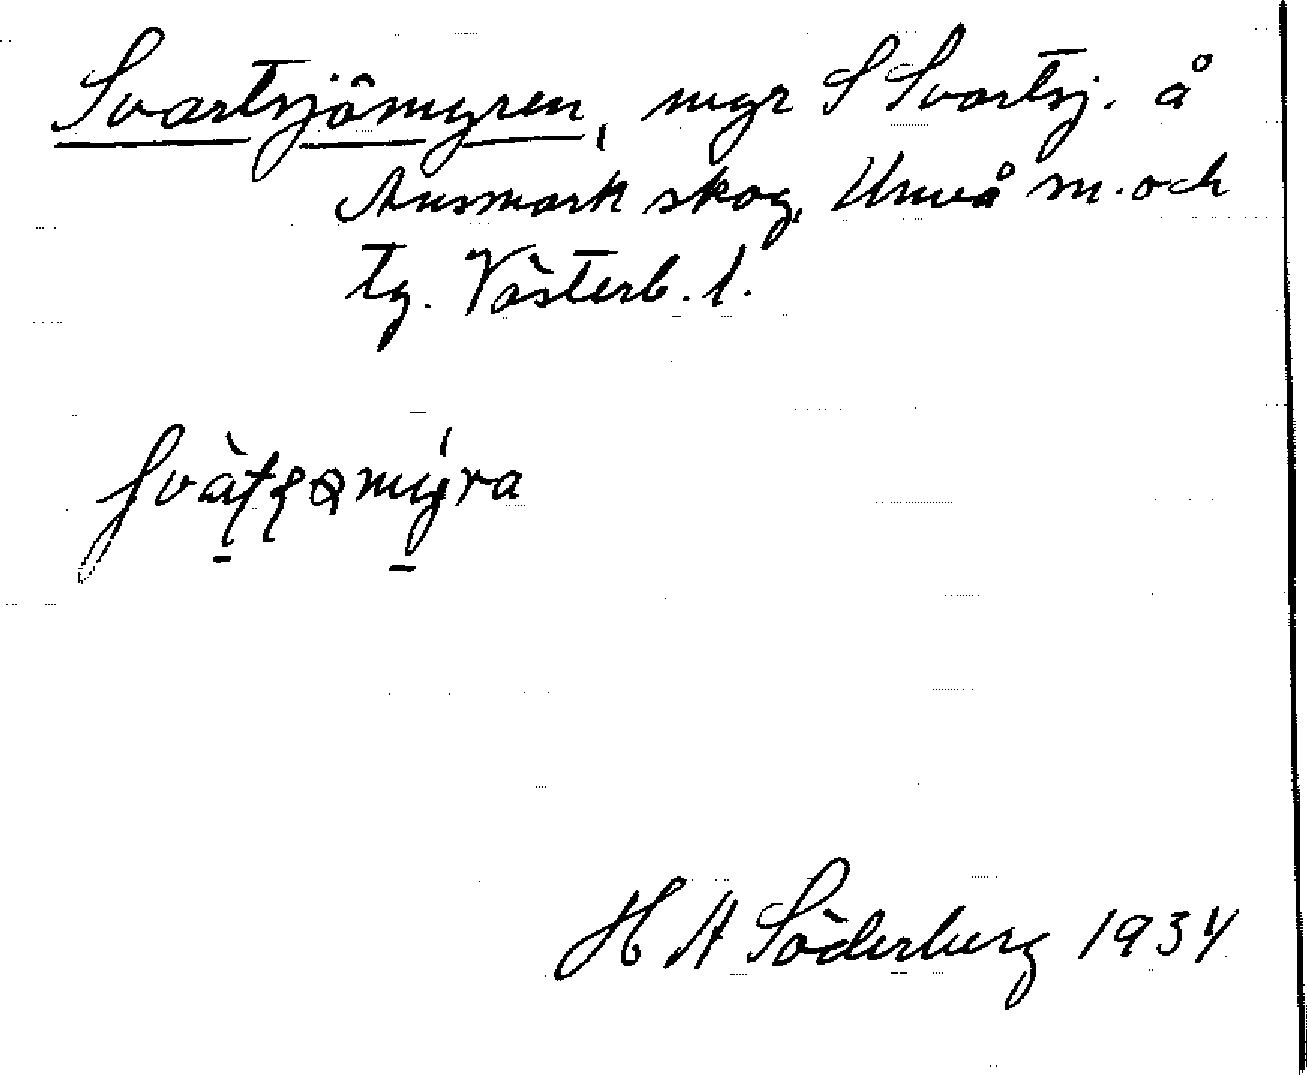 Svartsjömyren, myr S Svartsj. å
Ansmark skog, Umeå m. och
tg. Västerb. l.
H A Söderberg 1934